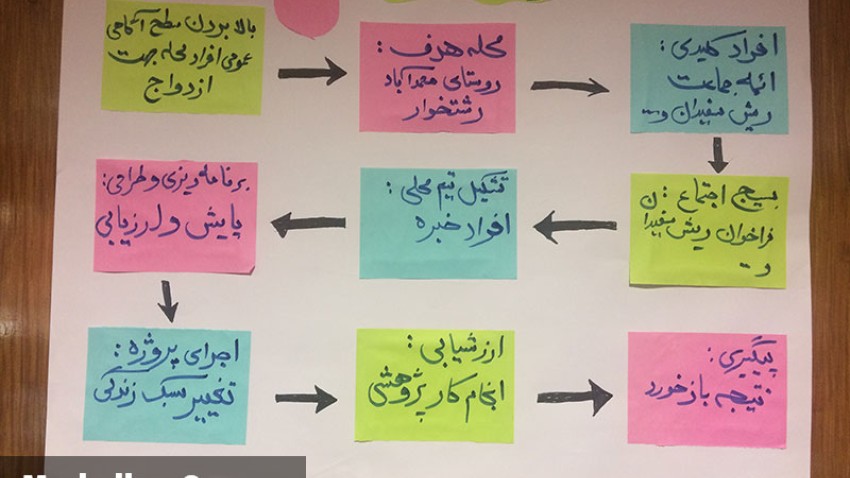 بالا بردن سطح آگاهی
عمومی افراد محله جهت
ازدواج
محله هدف:
روستای محمدآباد
رشتخوار
افراد کلیدی:
ائمه جماعت
ریش سفیدان و...
بسیج اجتماع:
فراخوان ریش سفیدان
و...
تشکیل تیم محلی:
افراد خبره
برنامه ریزی و طراحی:
پایش و ارزیابی
اجرای پروژه:
تغییر سبک زندگی
ارزشیابی:
انجام کار پژوهشی
پیگیری:
نتیجه بازخورد